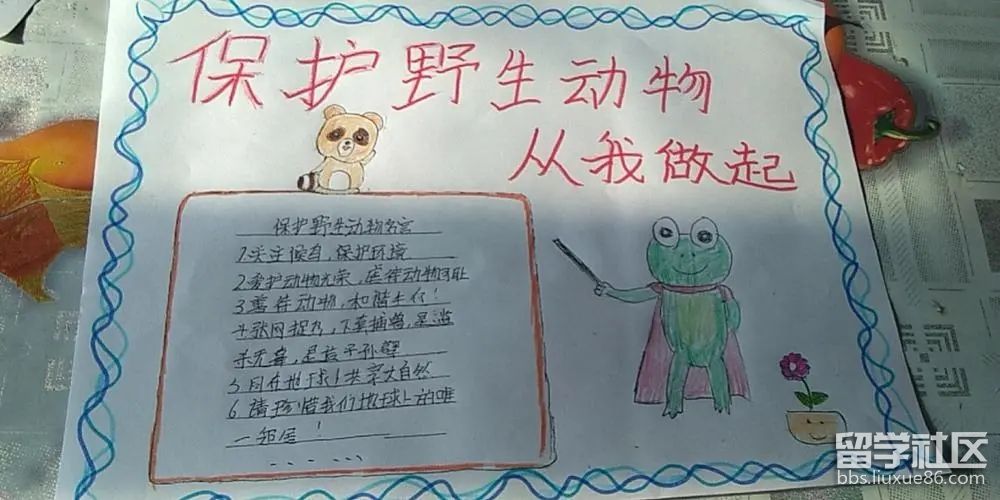 保护野生动物
从我做起
保护野生动物名言
1.关注候鸟,保护环境
2.爱护动物光荣,虐待动物可耻
3.善待动物,和谐
4.张网捉鸟,下套捕兽,是滥
杀无辜,是放子孙孽
5.同在地球!共享大自然
6.请珍惜我们地球上的唯
一邻居!
留学社区
bbs.liuxue86.com